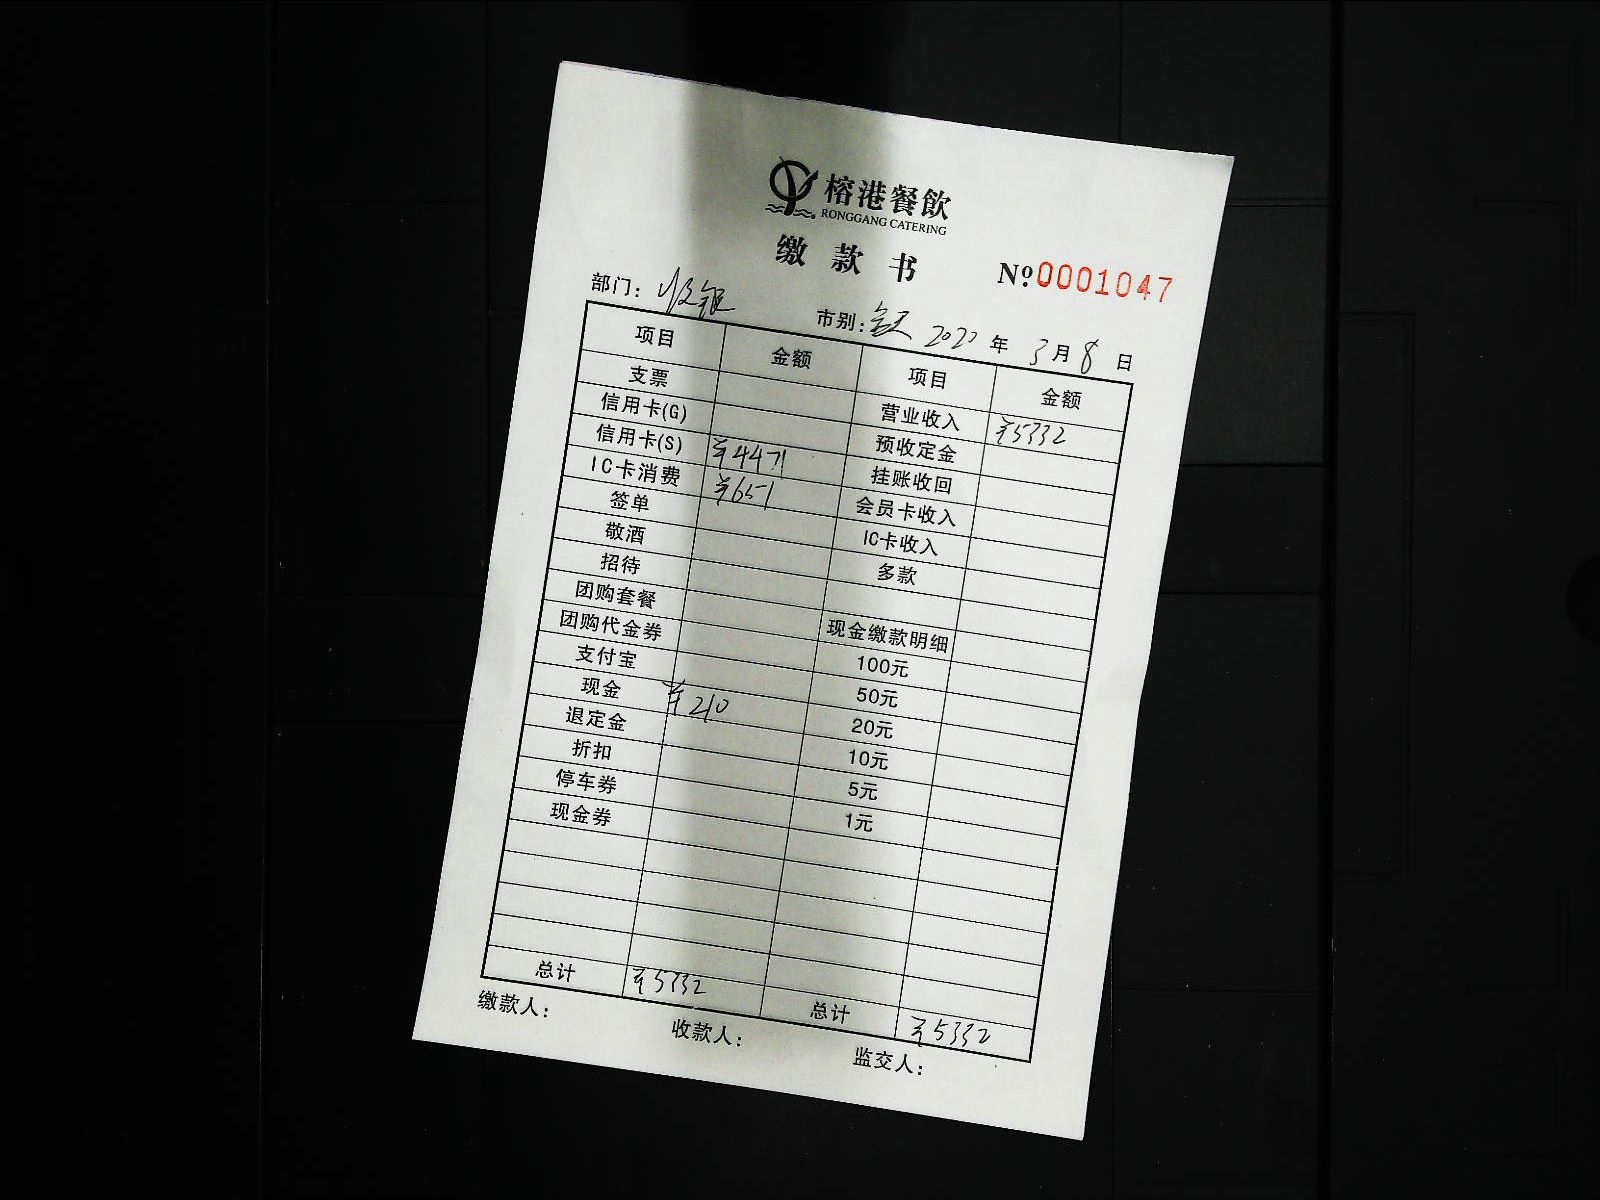 榕港餐飲
RONGGANG CATERING
缴款书
№0001047
部门: 收银 市别: 全天 2022 年 3 月 8 日
项目 金额 项目 金额
支票 营业收入 ¥5332
信用卡(G) 预收定金
信用卡(S) ¥4471 挂账收回
IC卡消费 ¥651 会员卡收入
签单 IC卡收入
敬酒 多款
招待
团购套餐 现金缴款明细
团购代金券 100元
支付宝 50元
现金 ¥210 20元
退定金 10元
折扣 5元
停车券 1元
现金券
总计 ¥5332 总计 ¥5332
缴款人: 收款人: 监交人: